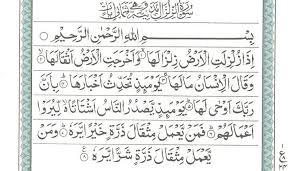 بِسْمِ اللَّهِ الرَّحْمَٰنِ الرَّحِيمِ
إِذَا زُلْزِلَتِ الْأَرْضُ زِلْزَالَهَا ۝ وَأَخْرَجَتِ الْأَرْضُ أَثْقَالَهَا ۝
وَقَالَ الْإِنْسَانُ مَا لَهَا ۝ يَوْمَئِذٍ تُحَدِّثُ أَخْبَارَهَا ۝ بِأَنَّ
رَبَّكَ أَوْحَىٰ لَهَا ۝ يَوْمَئِذٍ يَصْدُرُ النَّاسُ أَشْتَاتًا لِيُرَوْا
أَعْمَالَهُمْ ۝ فَمَنْ يَعْمَلْ مِثْقَالَ ذَرَّةٍ خَيْرًا يَرَهُ ۝ وَمَنْ
يَعْمَلْ مِثْقَالَ ذَرَّةٍ شَرًّا يَرَهُ ۝